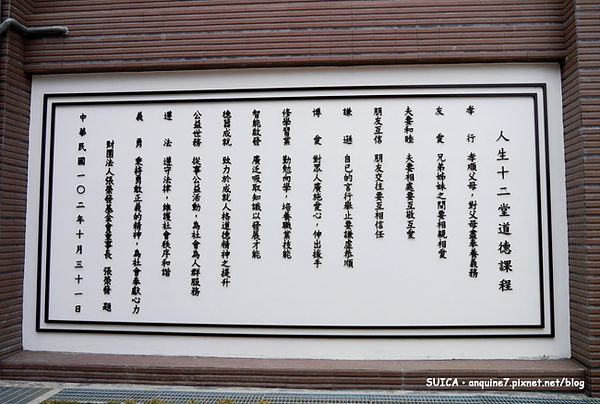 人生十二堂道德課程
孝　行　孝順父母，對父母盡奉養義務
友　愛　兄弟姊妹之間要相親相愛
夫妻和睦　夫妻相處要互敬互愛
朋友互信　朋友交往要互相信任
謙　遜　自己的言行舉止要謙虛恭順
博　愛　對眾人廣施愛心，伸出援手
修學習業　勤勉向學，培養職業技能
智能啟發　廣泛吸取知識以發展才能
德器成就　致力於成就人格道德精神之提升
公益世務　從事公益活動，為社會為人群服務
遵　法　遵守法律，維護社會秩序和諧
義　勇　秉持勇敢正義的精神，為社會奉獻心力
財團法人張榮發基金會董事長　張榮發　題
中華民國一〇二年十月三十一日
SUICA・anquine7.pixnet.net/blog